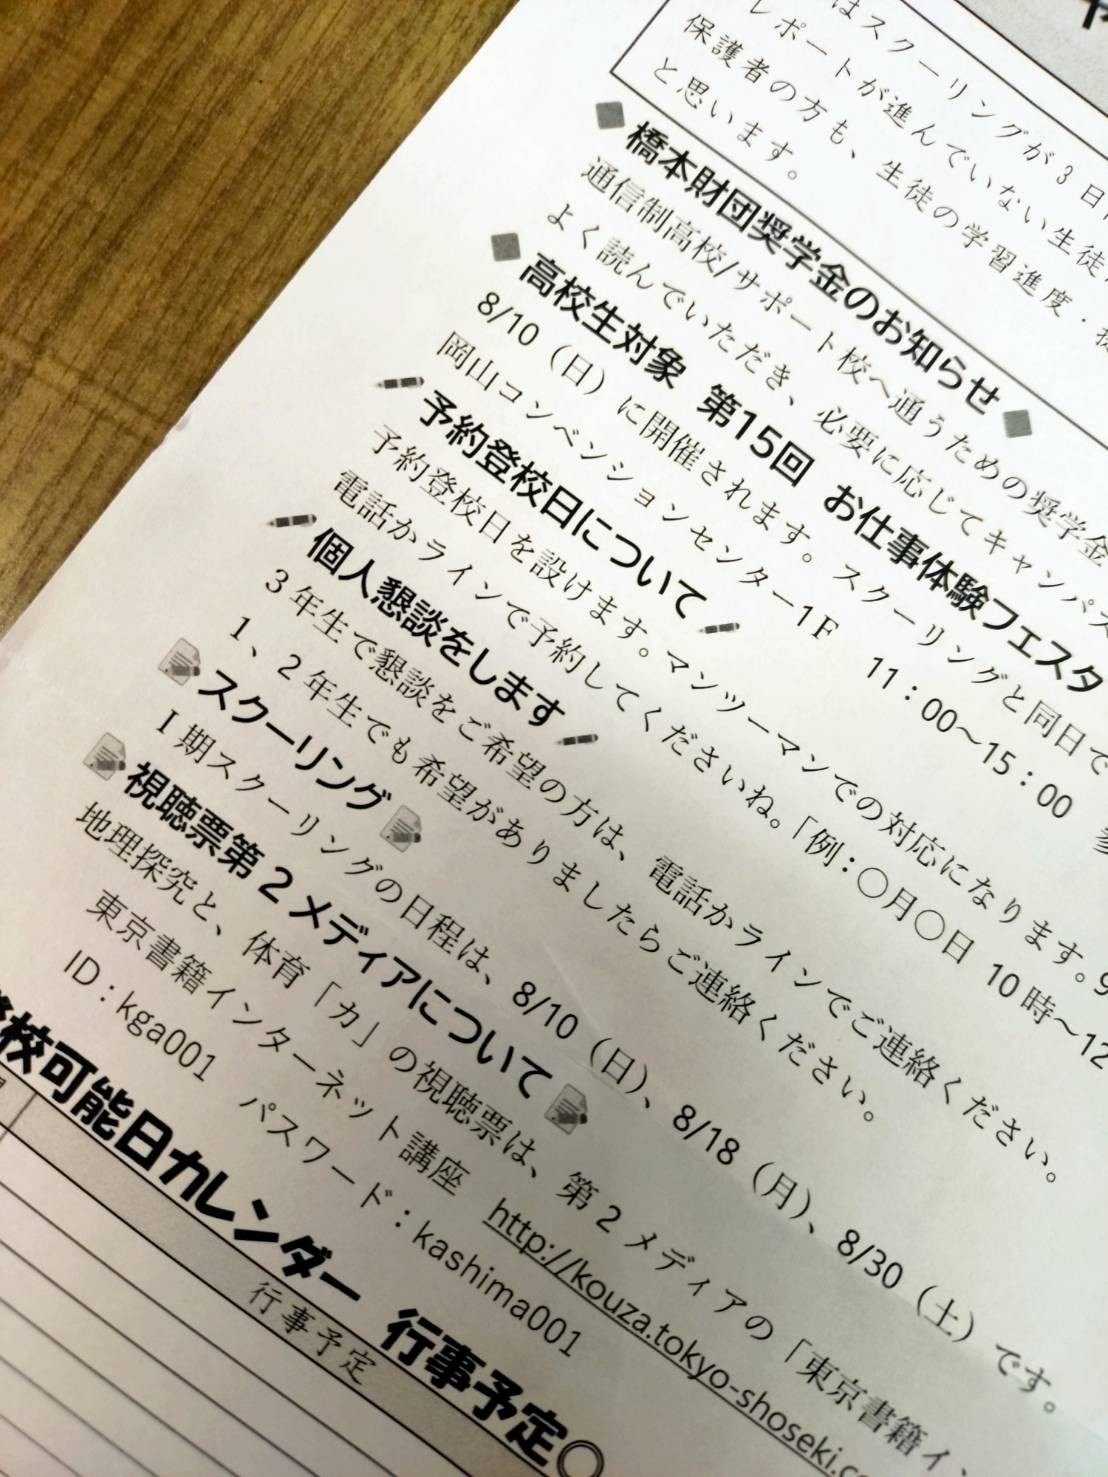 はスクーリングが3日
レポートが進んでいない生徒
保護者の方も、生徒の学習進度・
と思います。
橋本財団奨学金のお知らせ
通信制高校/サポート校へ通うための奨学金
よく読んでいただき、必要に応じてキャンパス
高校生対象 第15回 お仕事体験フェスタ
8/10（日）に開催されます。スクーリングと同日で
岡山コンベンションセンター1F 11：00～15：00
予約登校日について
予約登校日を設けます。マンツーマンでの対応になります。9
電話かラインで予約してくださいね。「例：○月○日 10時～12
個人懇談をします
3年生で懇談をご希望の方は、電話かラインでご連絡ください。
1、2年生でも希望がありましたらご連絡ください。
スクーリング
Ⅰ期スクーリングの日程は、8/10（日）、8/18（月）、8/30（土）です。
視聴票第2メディアについて
地理探究と、体育「カ」の視聴票は、第2メディアの「東京書籍イ
東京書籍インターネット講座 http://kouza.tokyo-shoseki.co
ID：kga001 パスワード：kashima001
校可能日カレンダー 行事予定○
行事予定